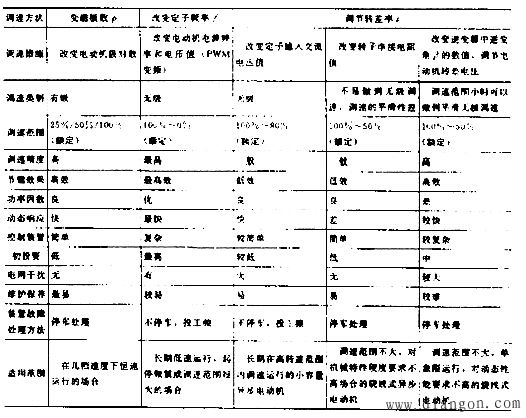 调速方法 变极极数 p 改变定子频率 f 调节转差率 s
调速措施 改变电动机极对数 改变电动机电源频率和电压值(PWM变频) 改变定子输入交流电压值 改变转子串接电阻值 改变逆变器中逆变角β的数值,调节电动机转差电压
调速类别 有级 无级 无级 不易做到无级调速,调速的平滑性差 调速范围小时可以做到平滑无级调速
调速范围 25%/50%/100%(额定) 100%~0%(额定) 100%~80%(额定) 100%~50%(额定) 100%~50%(额定)
调速精度 高 最高 一般 一般 高
节能效果 高效 最高效 低效 低效 高效
功率因数 良 优 良 良 差
动态响应 快 最快 快 差 较快
控制装置 简单 复杂 较简单 简单 较复杂
初投资 低 最高 较低 低 中
电网干扰 无 有 大 无 较大
维护保养 最易 较易 易 易 较难
装置故障处理方法 停车处理 不停车,投工频 不停车,投工频 停车处理 停车处理
适用范围 在几档速度下恒速运行的场合 长期低速运行,起停频繁或调速范围较大的场合 长期在高转速范围内调速运行的小容量异步电动机 调速范围不大,对机械特性硬度要求不高场合的绕线式异步电动机 调速范围不大,单象限运行,对动态性能要求不高的绕线式电动机
www.diangon.com